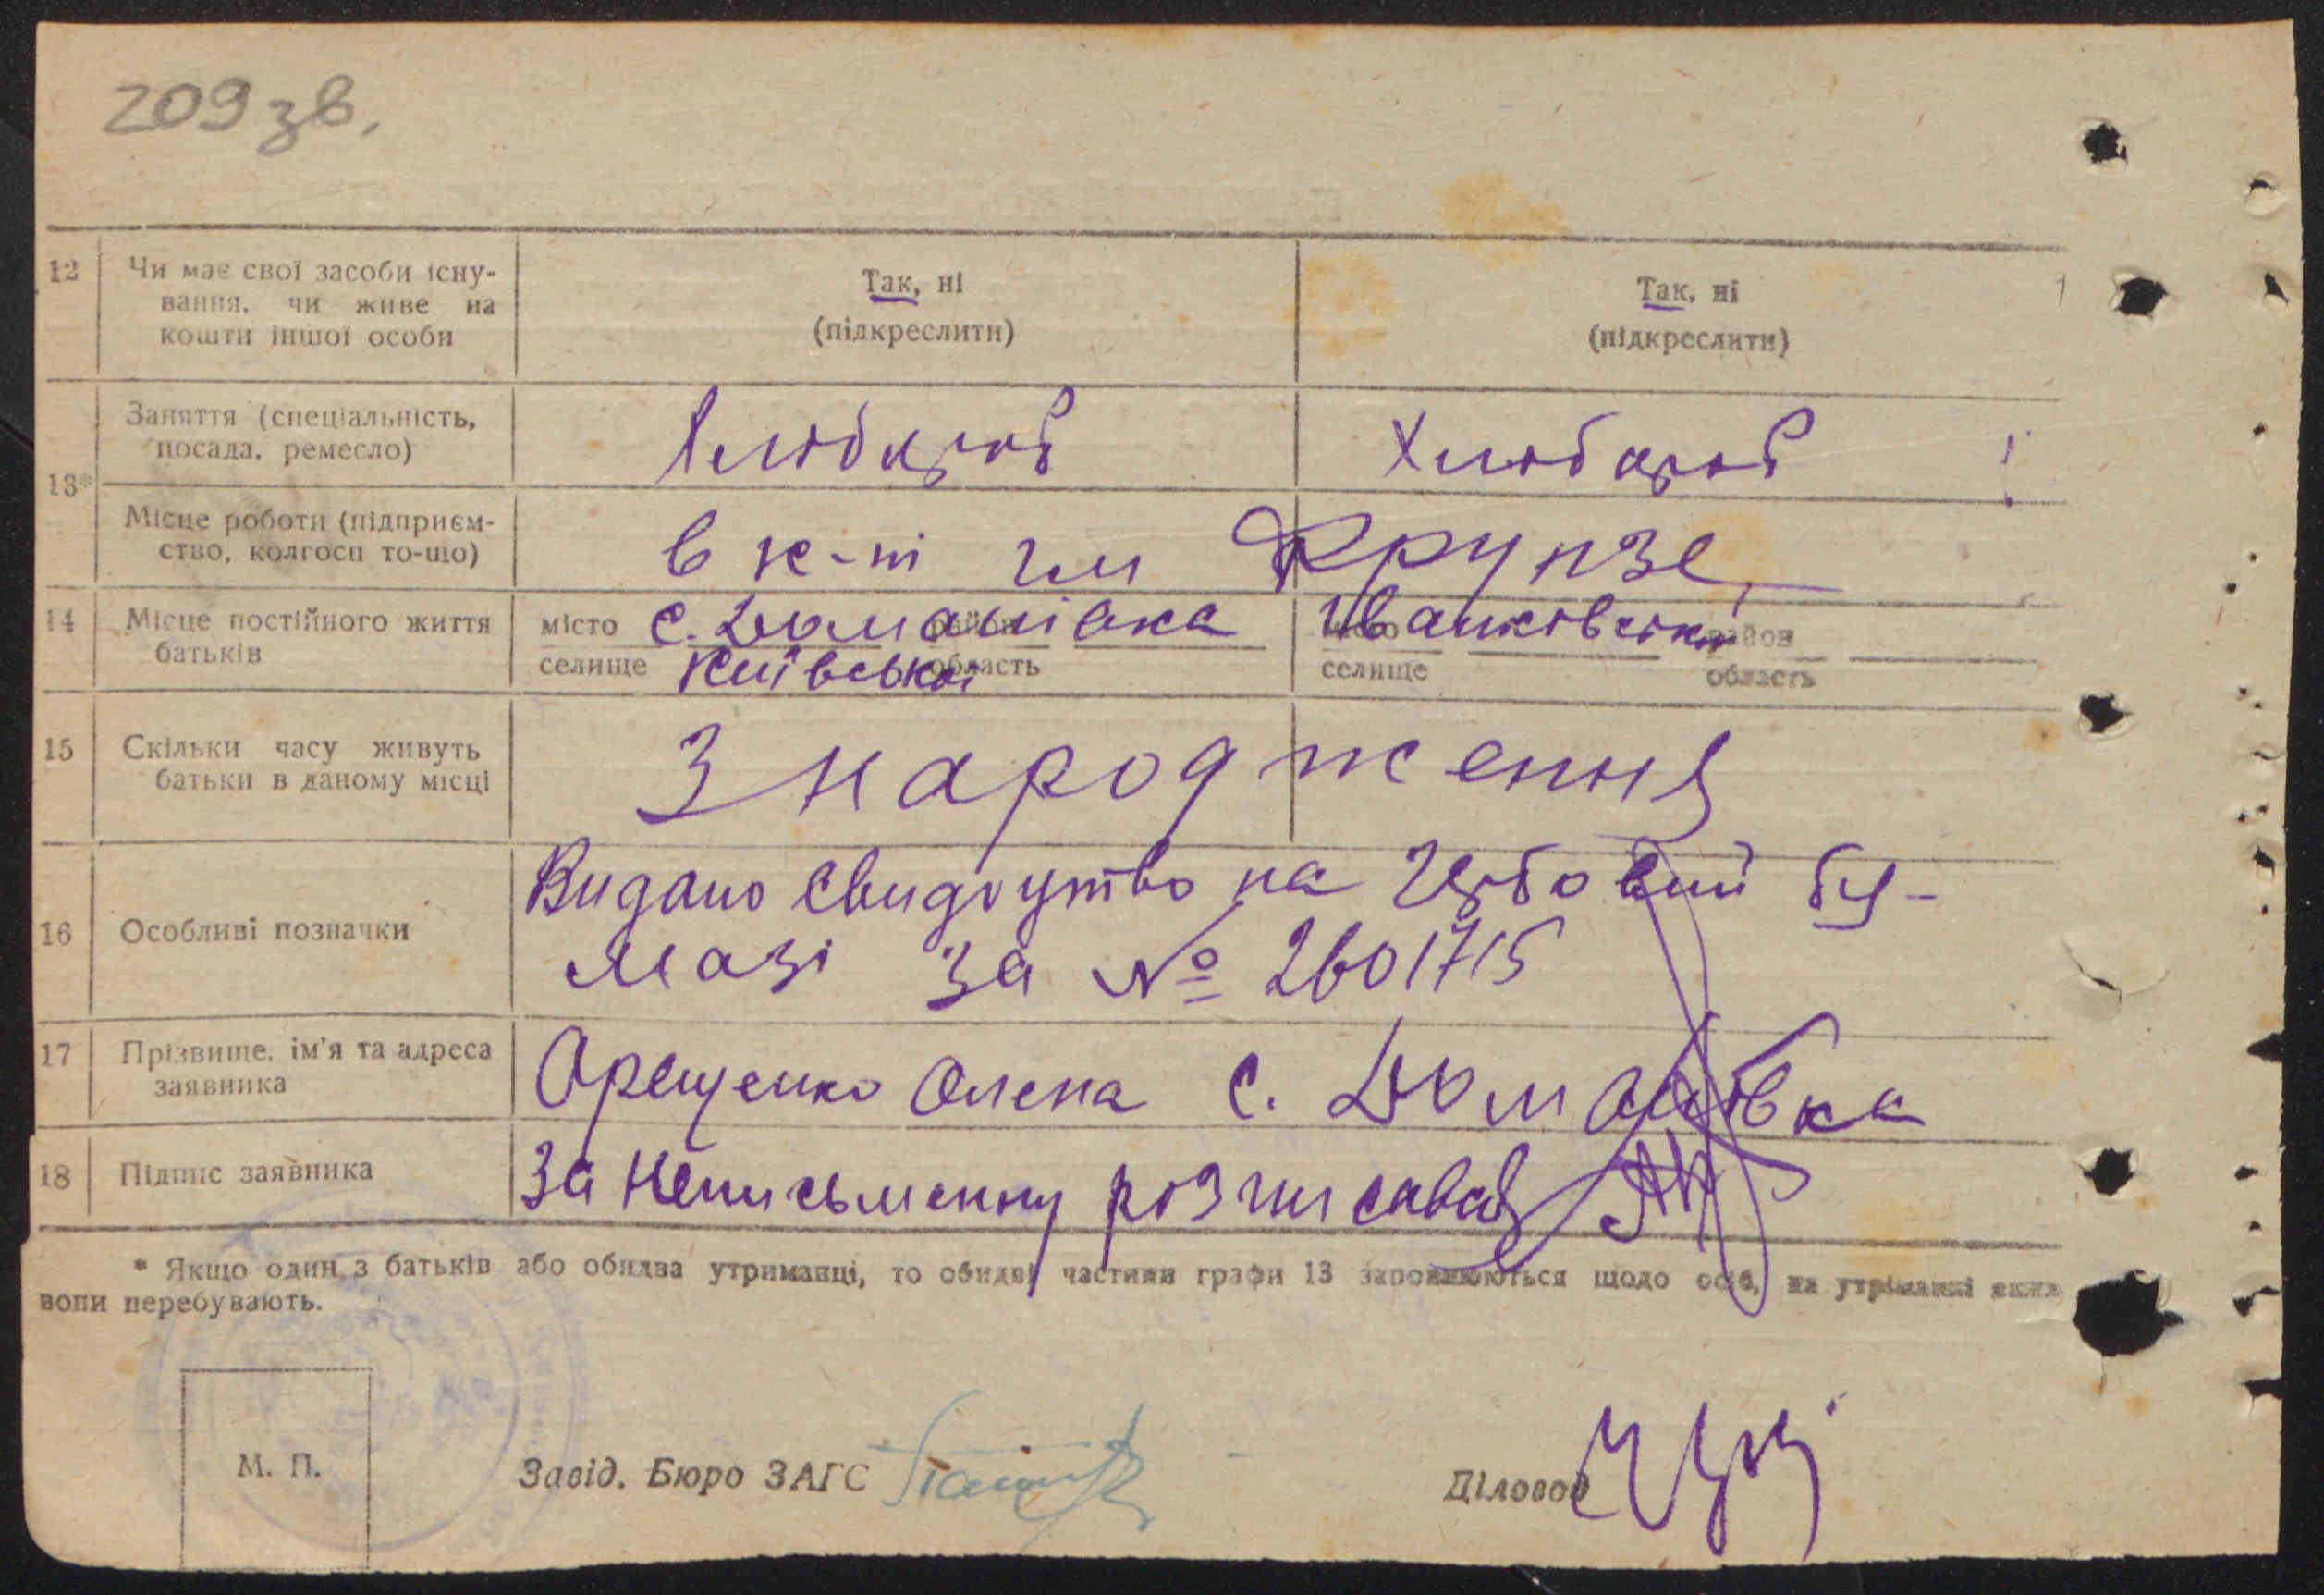 209 зв.
12 Чи має свої засоби існу-
вання, чи живе на
кошти іншої особи
Так, ні
(підкреслити)
Так, ні
(підкреслити)
13* Заняття (спеціальність,
посада, ремесло)
Хлібороб
Хлібороб
Місце роботи (підприєм-
ство, колгосп то-що)
в к-пі ім Фрунзе,
14 Місце постійного життя
батьків
місто с. Домашівка район
селище Київської область
місто Іванківський район
селище область
15 Скільки часу живуть
батьки в даному місці
З народження
16 Особливі позначки
Видано свидоцтво на Гербовий бу-
мазі за № 2601715
17 Прізвище, ім'я та адреса
заявника
Орещенко Олена с.
18 Підпис заявника
За неписьменну розписався
* Якщо один з батьків або обидва утриманці, то обидві частини графи 13 заповнюються щодо осіб, на утриманні яких
вони перебувають.
М. П.
Завід. Бюро ЗАГС
Діловод